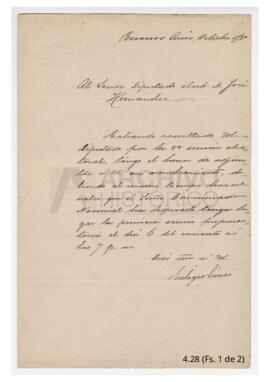 Buenos Aires, Octubre 5/80
Al Señor Diputado electo D. José
Hernandez
Habiendo resultado Vd.
Diputado por la 2ª sección elec-
toral, tengo el honor de adjun-
tar a su nombramiento,
tiendo al mismo tiempo
saber que el Señor Comisionado
Nacional ha dispuesto tenga lu-
gar la primera sesión prepara-
toria el dia 6 del corriente a
las 7 p. m.
Dios gue a Vd.
ARCHIVO
HISTÓRICO
4.28 (Fs. 1 de 2)